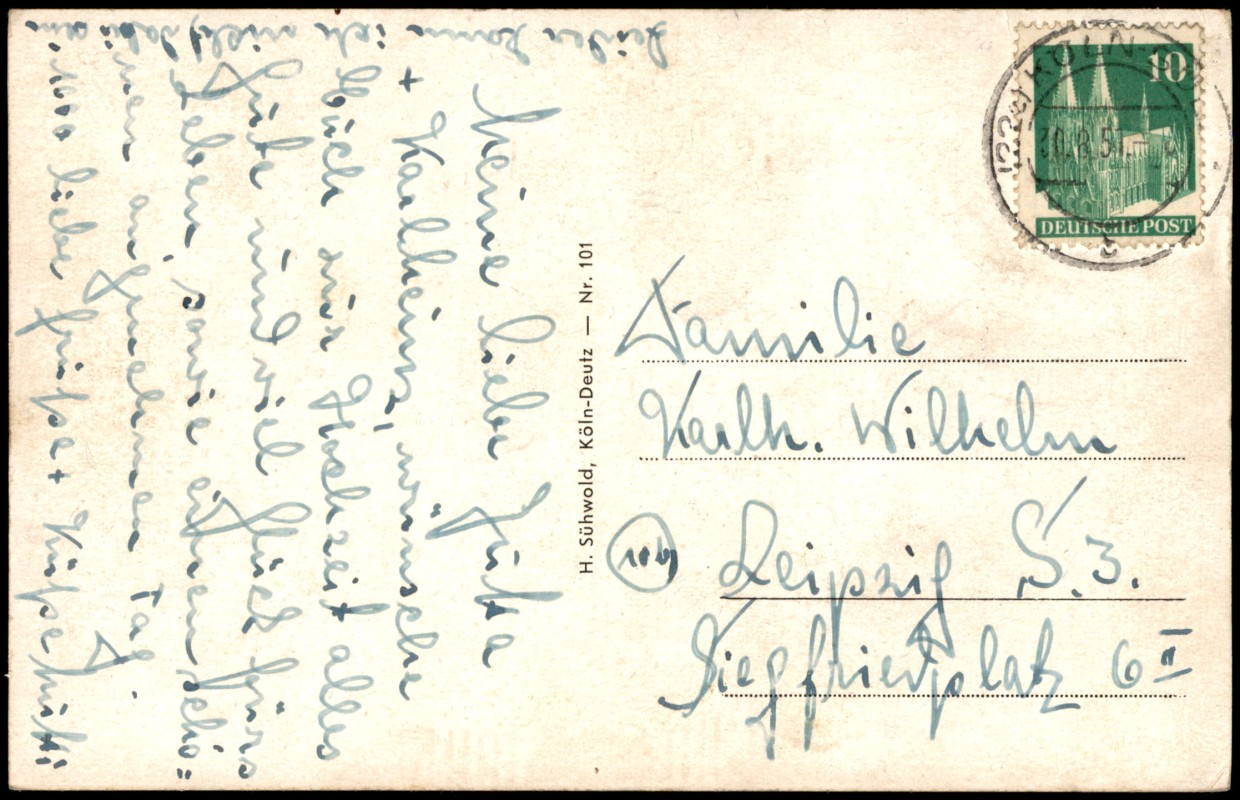 Meine liebe
+ Karlheinz, wünsche
Euch zur Hochzeit alles
Gute und viel Glück fürs
Leben, sowie einen schö=
nen angenehmen Tag
1000 liebe Grüße + Küße
Leider kann ich nicht dabei
H. Sühwold, Köln-Deutz — Nr. 101
10
DEUTSCHE POST
(22c) KÖLN
30.8.51.
Familie
Karlh. Wilhelm
10b Leipzig S.3.
Siegfriedplatz 6 II